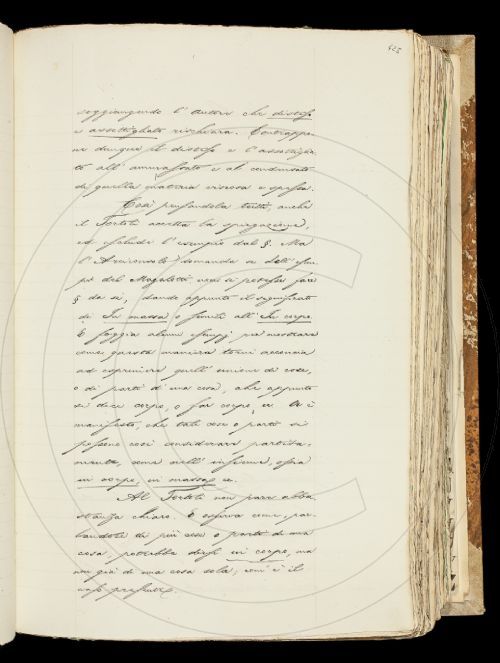 425
soggiungendo l'Autore che disteso
e assottigliato rischiara. Contrappo-
ne dunque il disteso e l'assottiglia-
to all'ammassato e al condensato
di quella materia viscosa e spessa.
Così pensandola tutti, anche
il Tortoli accetta la spiegazione,
ed esclude l'esempio dal §. Ma
l'Arciconsolo domanda se dell'esem-
pio del Magalotti non si potesse fare
§ da sè, dando appunto il significato
di In massa o simile all'In corpo.
E foggia alcuni esempj per mostrare
come questa maniera torni acconcia
ad esprimere quell'unione di cose,
o di parti d'una cosa, che appunto
si dice corpo, o far corpo, ec. Or è
manifesto, che tali cose o parti si
possono così considerare partita-
mente, come nell'insieme, ossia
in corpo, in massa ec.
Al Tortoli non pare abba-
stanza chiaro. E osserva come, par-
landosi di più cose o parti di una
cosa, potrebbe dirsi in corpo, ma
non già di una cosa sola; com'è il
caso presente.